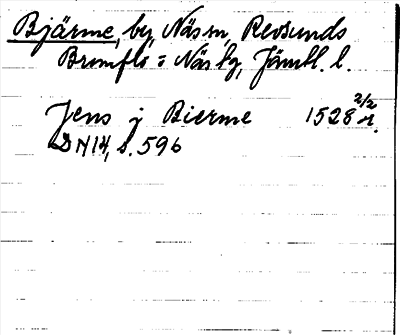 Bjärme, by, Näs sn, Revsunds
Brunflo o Näs tg, Jämtl. l.
Jens j Bierme 1528 2/2 r.
DN 14, s. 596